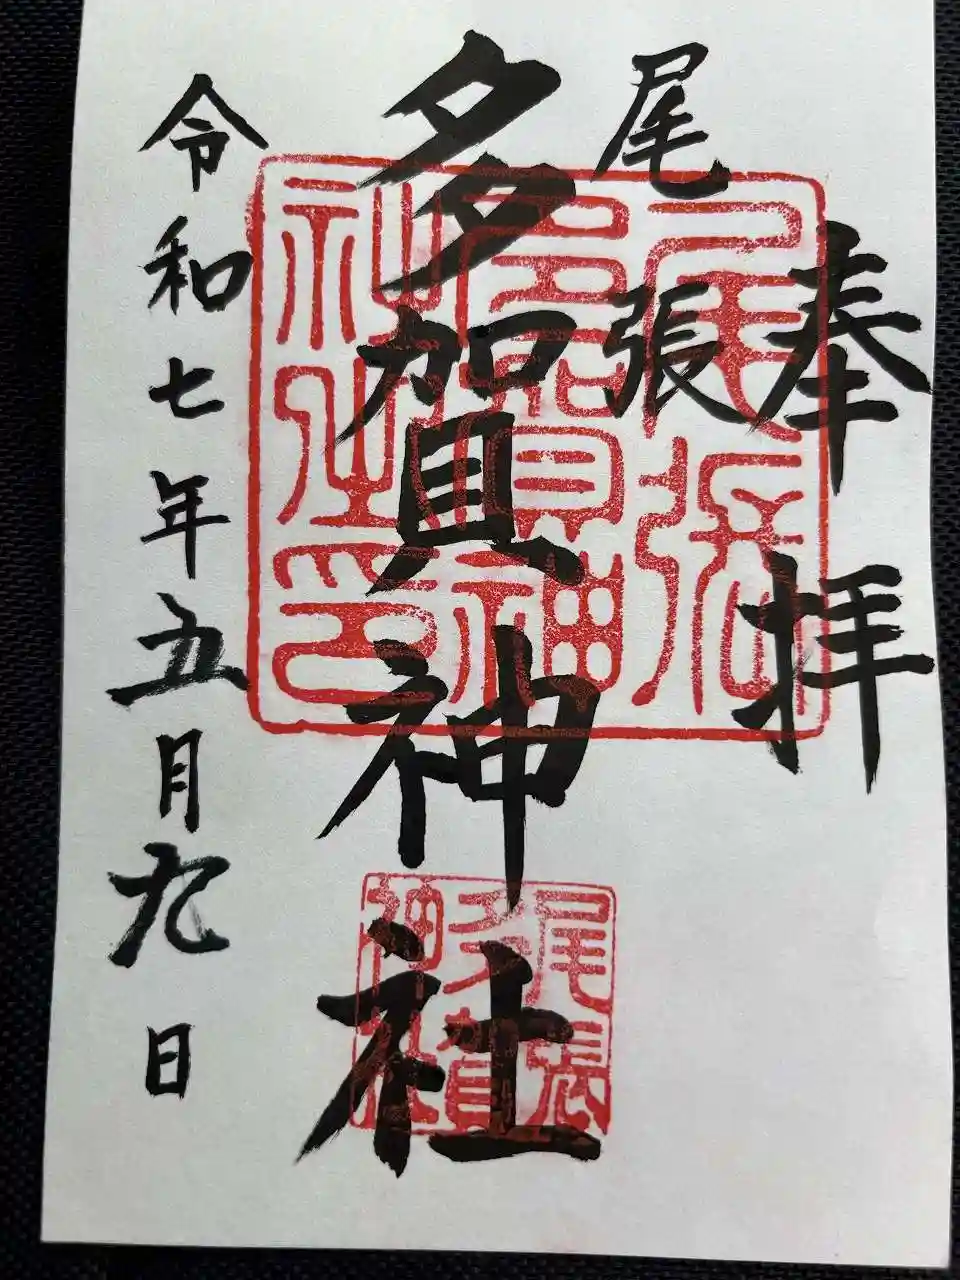 奉拝
尾張
多賀神社
令和七年五月九日
尾張
多賀神
社之印
尾張
多賀
神社